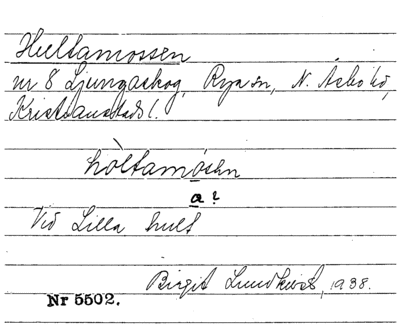 Hultamossen
nr 8 Ljungaskog, Rya sn, N. Åsbo hd,
Kristianstads l.
hòltamósen
a?
Vid Lilla hult
Birgit Lundkvist, 1938.
Nr 5502.